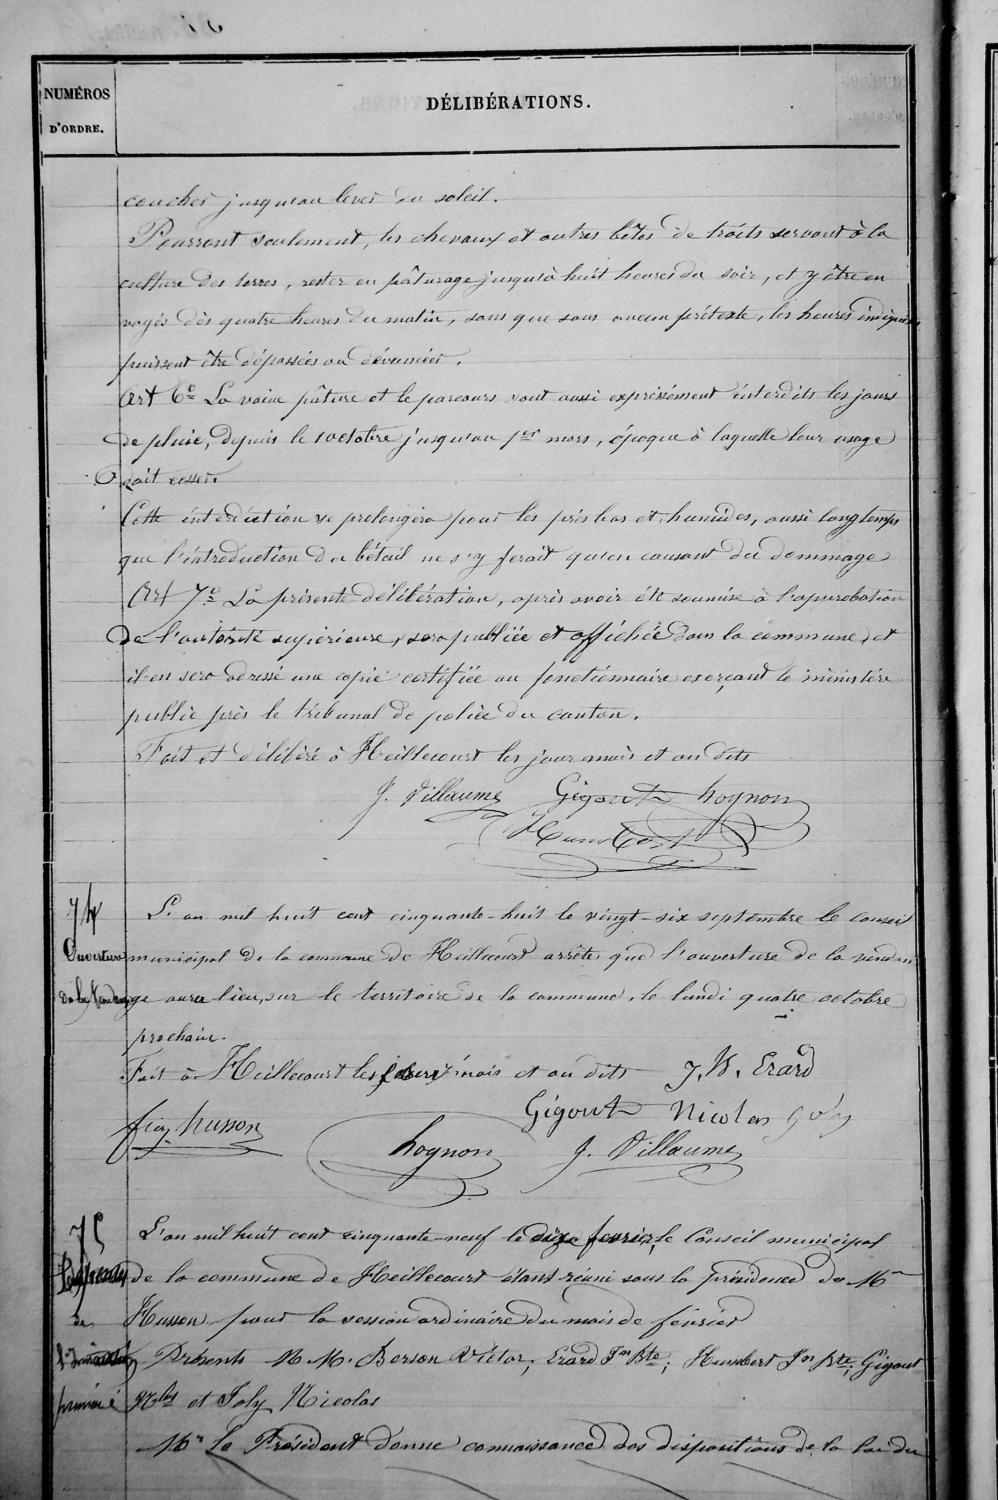 NUMÉROS
D'ORDRE.
DÉLIBÉRATIONS.
coucher jusqu'au lever du soleil.
Pourront seulement, les chevaux et autres bêtes de traits servant à la
culture des terres, rester en pâturage jusqu'à huit heures du soir, et y être en
voyés dès quatre heures du matin, sans que sous aucun prétexte, les heures indiquées
puissent être dépassées ou devancées.
Art 6e La vaine pâture et le parcours sont aussi expressément interdits les jours
de pluie, depuis le 1 octobre jusqu'au 1er mars, époque à laquelle leur usage
doit cesser.
Cette interdiction se prolongera pour les prés bas et humides, aussi longtemps
que l'introduction du bétail ne s'y ferait qu'en causant du dommage
Art 7e La présente délibération, après avoir été soumise à l'approbation
de l'autorité supérieure, sera publiée et affichée dans la commune, et
il en sera adressé une copie certifiée au fonctionnaire exerçant le ministère
public près le tribunal de police du canton.
Fait et délibéré à Heillecourt les jour mois et an dits
J. Villaume Gigout hognon
Humbert
74
Ouverture
de la Vendange
L'an mil huit cent cinquante-huit le vingt-six septembre le conseil
municipal de la commune de Heillecourt arrête que l'ouverture de la vendan
ge aura lieu, sur le territoire de la commune, le lundi quatre octobre
prochain.
Fait à Heillecourt les jour mois et an dits J. B. Erard
Gigout Nicolas Joly
husson
hognon J. Villaume
75
de
primaire
L'an mil huit cent cinquante-neuf le dix février, le Conseil municipal
de la commune de Heillecourt étant réuni sous la présidence de Mr
Husson pour la session ordinaire du mois de février
Présents M M. Berson Victor; Erard Jn Bte; Humbert Jn Bte; Gigout
Nlas et Joly Nicolas
Mr Le Président donne connaissance des dispositions de la loi du